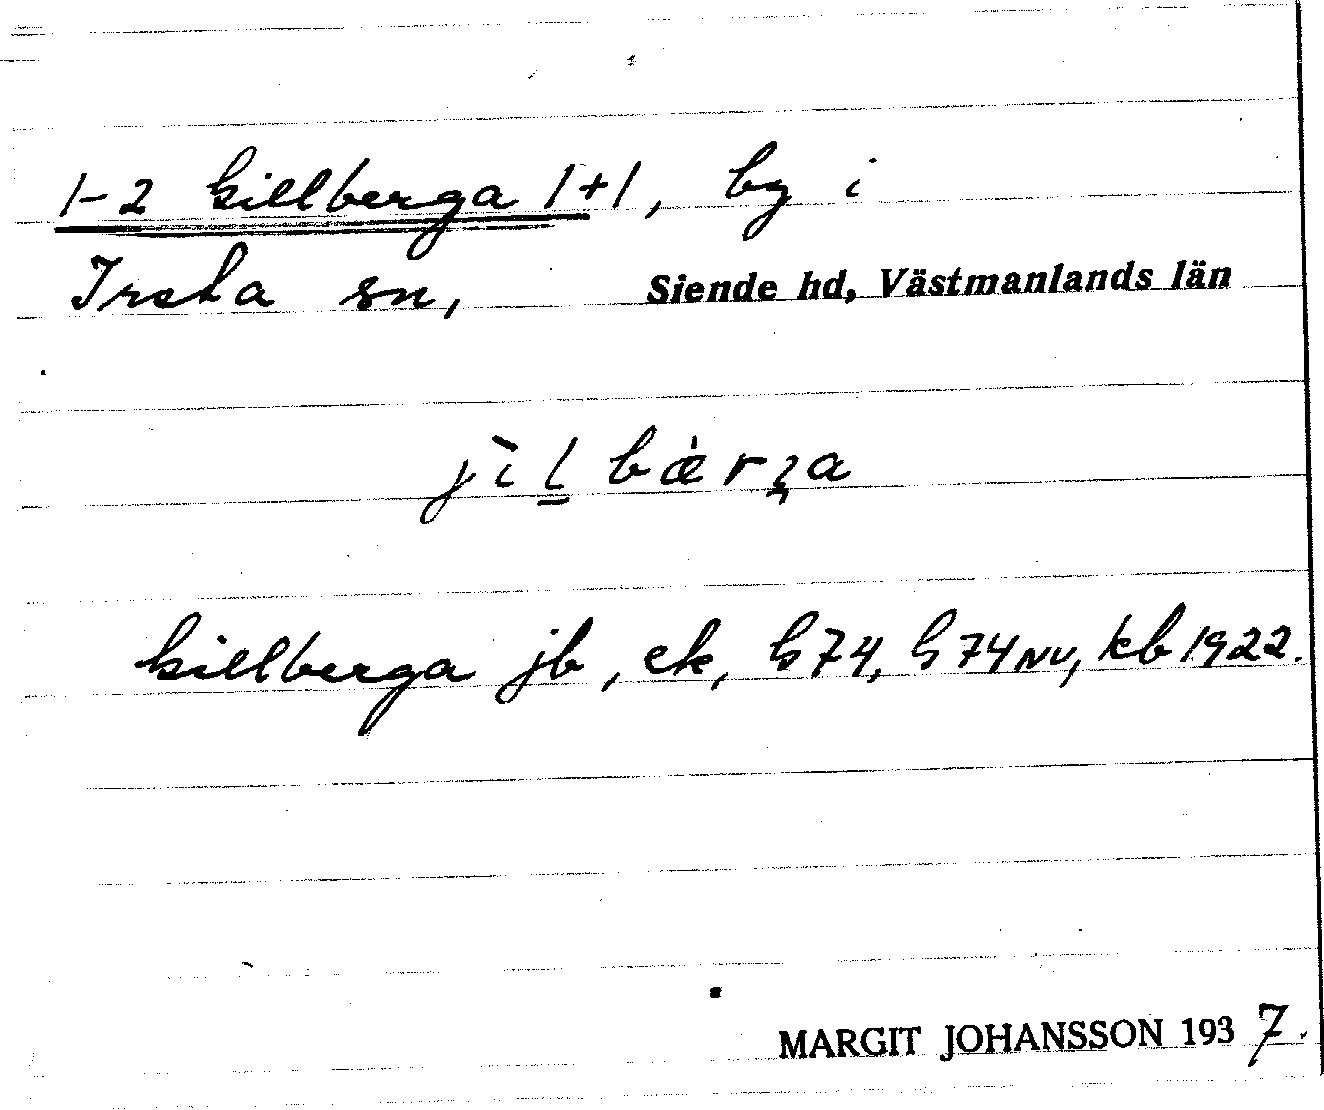 1-2 Gillberga 1+1, by i
Irsta sn, Siende hd, Västmanlands län
jìl̲ bæ̀rʒa
Gillberga jb, ek, G 74, G 74 NV, kb 1922.
MARGIT JOHANSSON 1937.